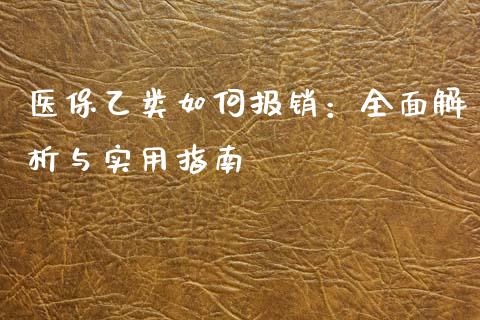 医保乙类如何报销：全面解
析与实用指南